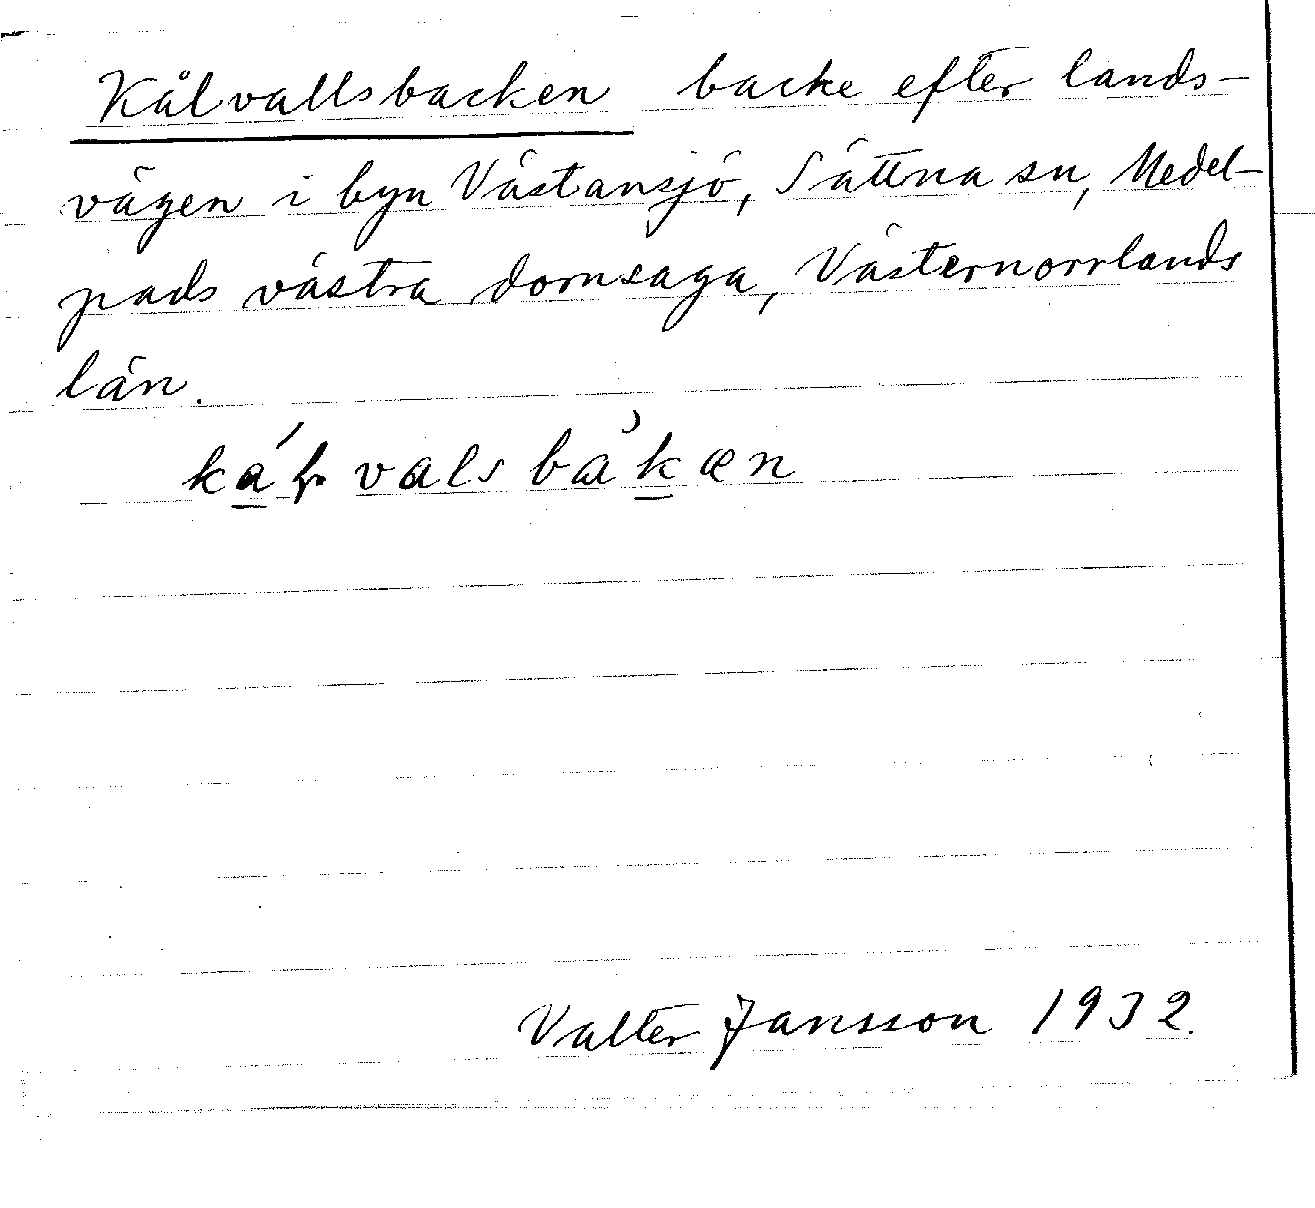 Kålvallsbacken backe efter lands-
vägen i byn Västansjö, Sättna sn, Medel-
pads västra domsaga, Västernorrlands
län.
vals
Valter Jansson 1932.